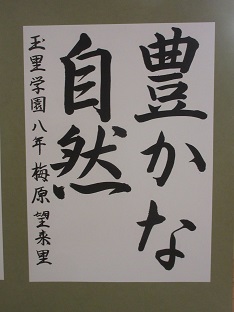 豊かな
自然
玉里学園八年 梅原 望来里